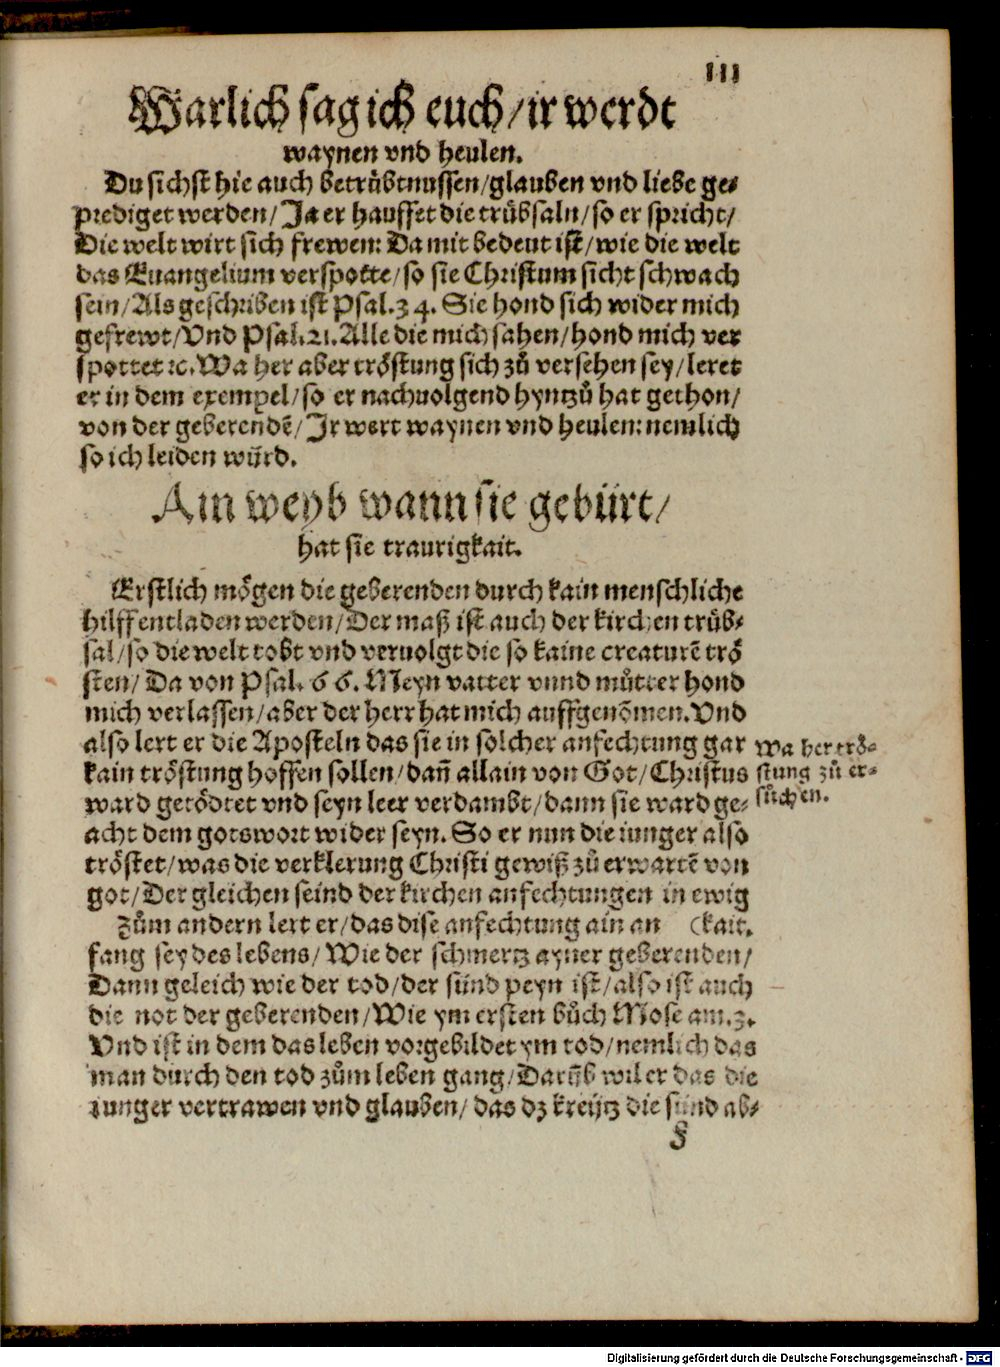 III
Warlich sag ich euch/ir werdt
waynen vnd heulen.
Du sichst hie auch betrübtnussen/glauben vnd liebe ge⸗
prediget werden/Ja er hauffet die trübsaln/so er spricht/
Die welt wirt sich frewen: Damit bedeut ist/wie die welt
das Euangelium verspotte/so sie Christum sicht schwach
sein/Als geschriben ist Psal.34. Sie hond sich wider mich
gefrewt/Vnd Psal.21.Alle die mich sahen/hond mich ver
spottet ꝛc.Wa her aber tröstung sich zů versehen sey/leret
er in dem exempel/so er nachuolgend hyntzů hat gethon/
von der geberendẽ/Jr wert waynen vnd heulen: nemlich
so ich leiden würd.
Ain weyb wann sie gebürt/
hat sie traurigkait.
Erstlich mögen die geberenden durch kain menschliche
hilff entladen werden/Der maß ist auch der kirchen trüb⸗
sal/so die welt tobt vnd veruolgt die so kaine creaturẽ trö
sten/Da von Psal.66.Meyn vatter vnnd můtter hond
mich verlassen/aber der herr hat mich auffgenõmen.Vnd
also lert er die Aposteln das sie in solcher anfechtung gar
kain tröstung hoffen sollen/dañ allain von Got/Christus
ward getödtet vnd seyn leer verdambt/dann sie ward ge⸗
acht dem gotswort wider seyn. So er nun die iunger also
tröstet/was die verklerung Christi gewiß zů erwartẽ von
got/Der gleichen seind der kirchen anfechtungen in ewig
Zům andern lert er/das dise anfechtung ain an (kait.
fang sey des lebens/Wie der schmertz ayner geberenden/
Dann geleich wie der tod/der sünd peyn ist/also ist auch
die not der geberenden/Wie ym ersten bůch Mose am.3.
Vnd ist in dem das leben vorgebildet ym tod/nemlich das
man durch den tod zům leben gang/Darüb wil er das die
iunger vertrawen vnd glauben/das dz kreütz die sünd ab⸗
Wa her trö⸗
stung zů er⸗
sůchen.
Digitalisierung gefördert durch die Deutsche Forschungsgemeinschaft - DFG